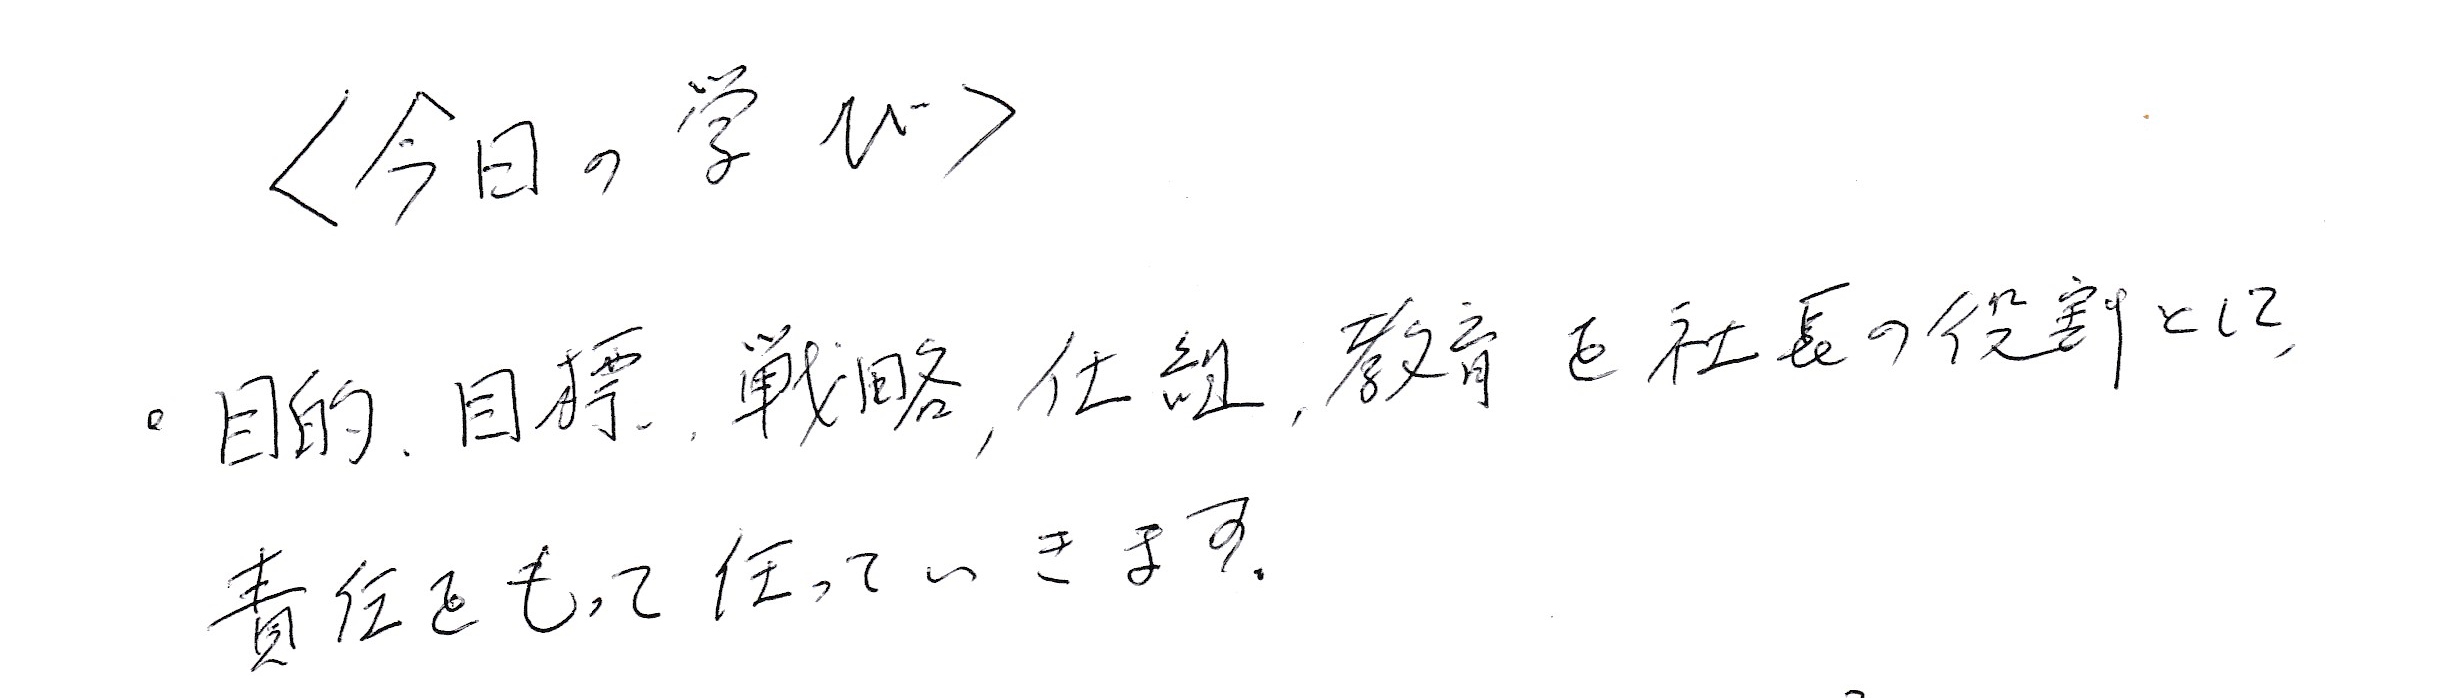 〈今日の学び〉
・目的、目標、戦略,仕組,教育を社長の役割として、
責任をもって任っていきます。